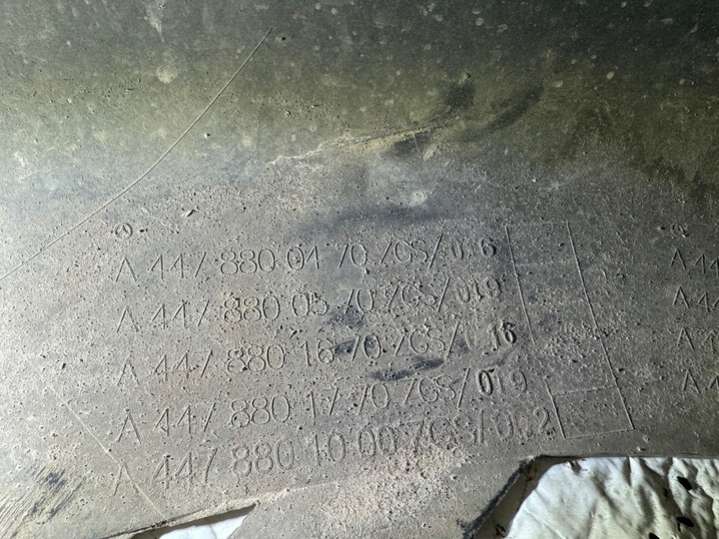 A 447 880 04 70 ZGS/016 A 44
A 447 880 05 70 ZGS/019 A 44
A 447 880 16 70 ZGS/016 A 4
A 447 880 17 70 ZGS/019 A 4
A 447 880 10 00 ZGS/002